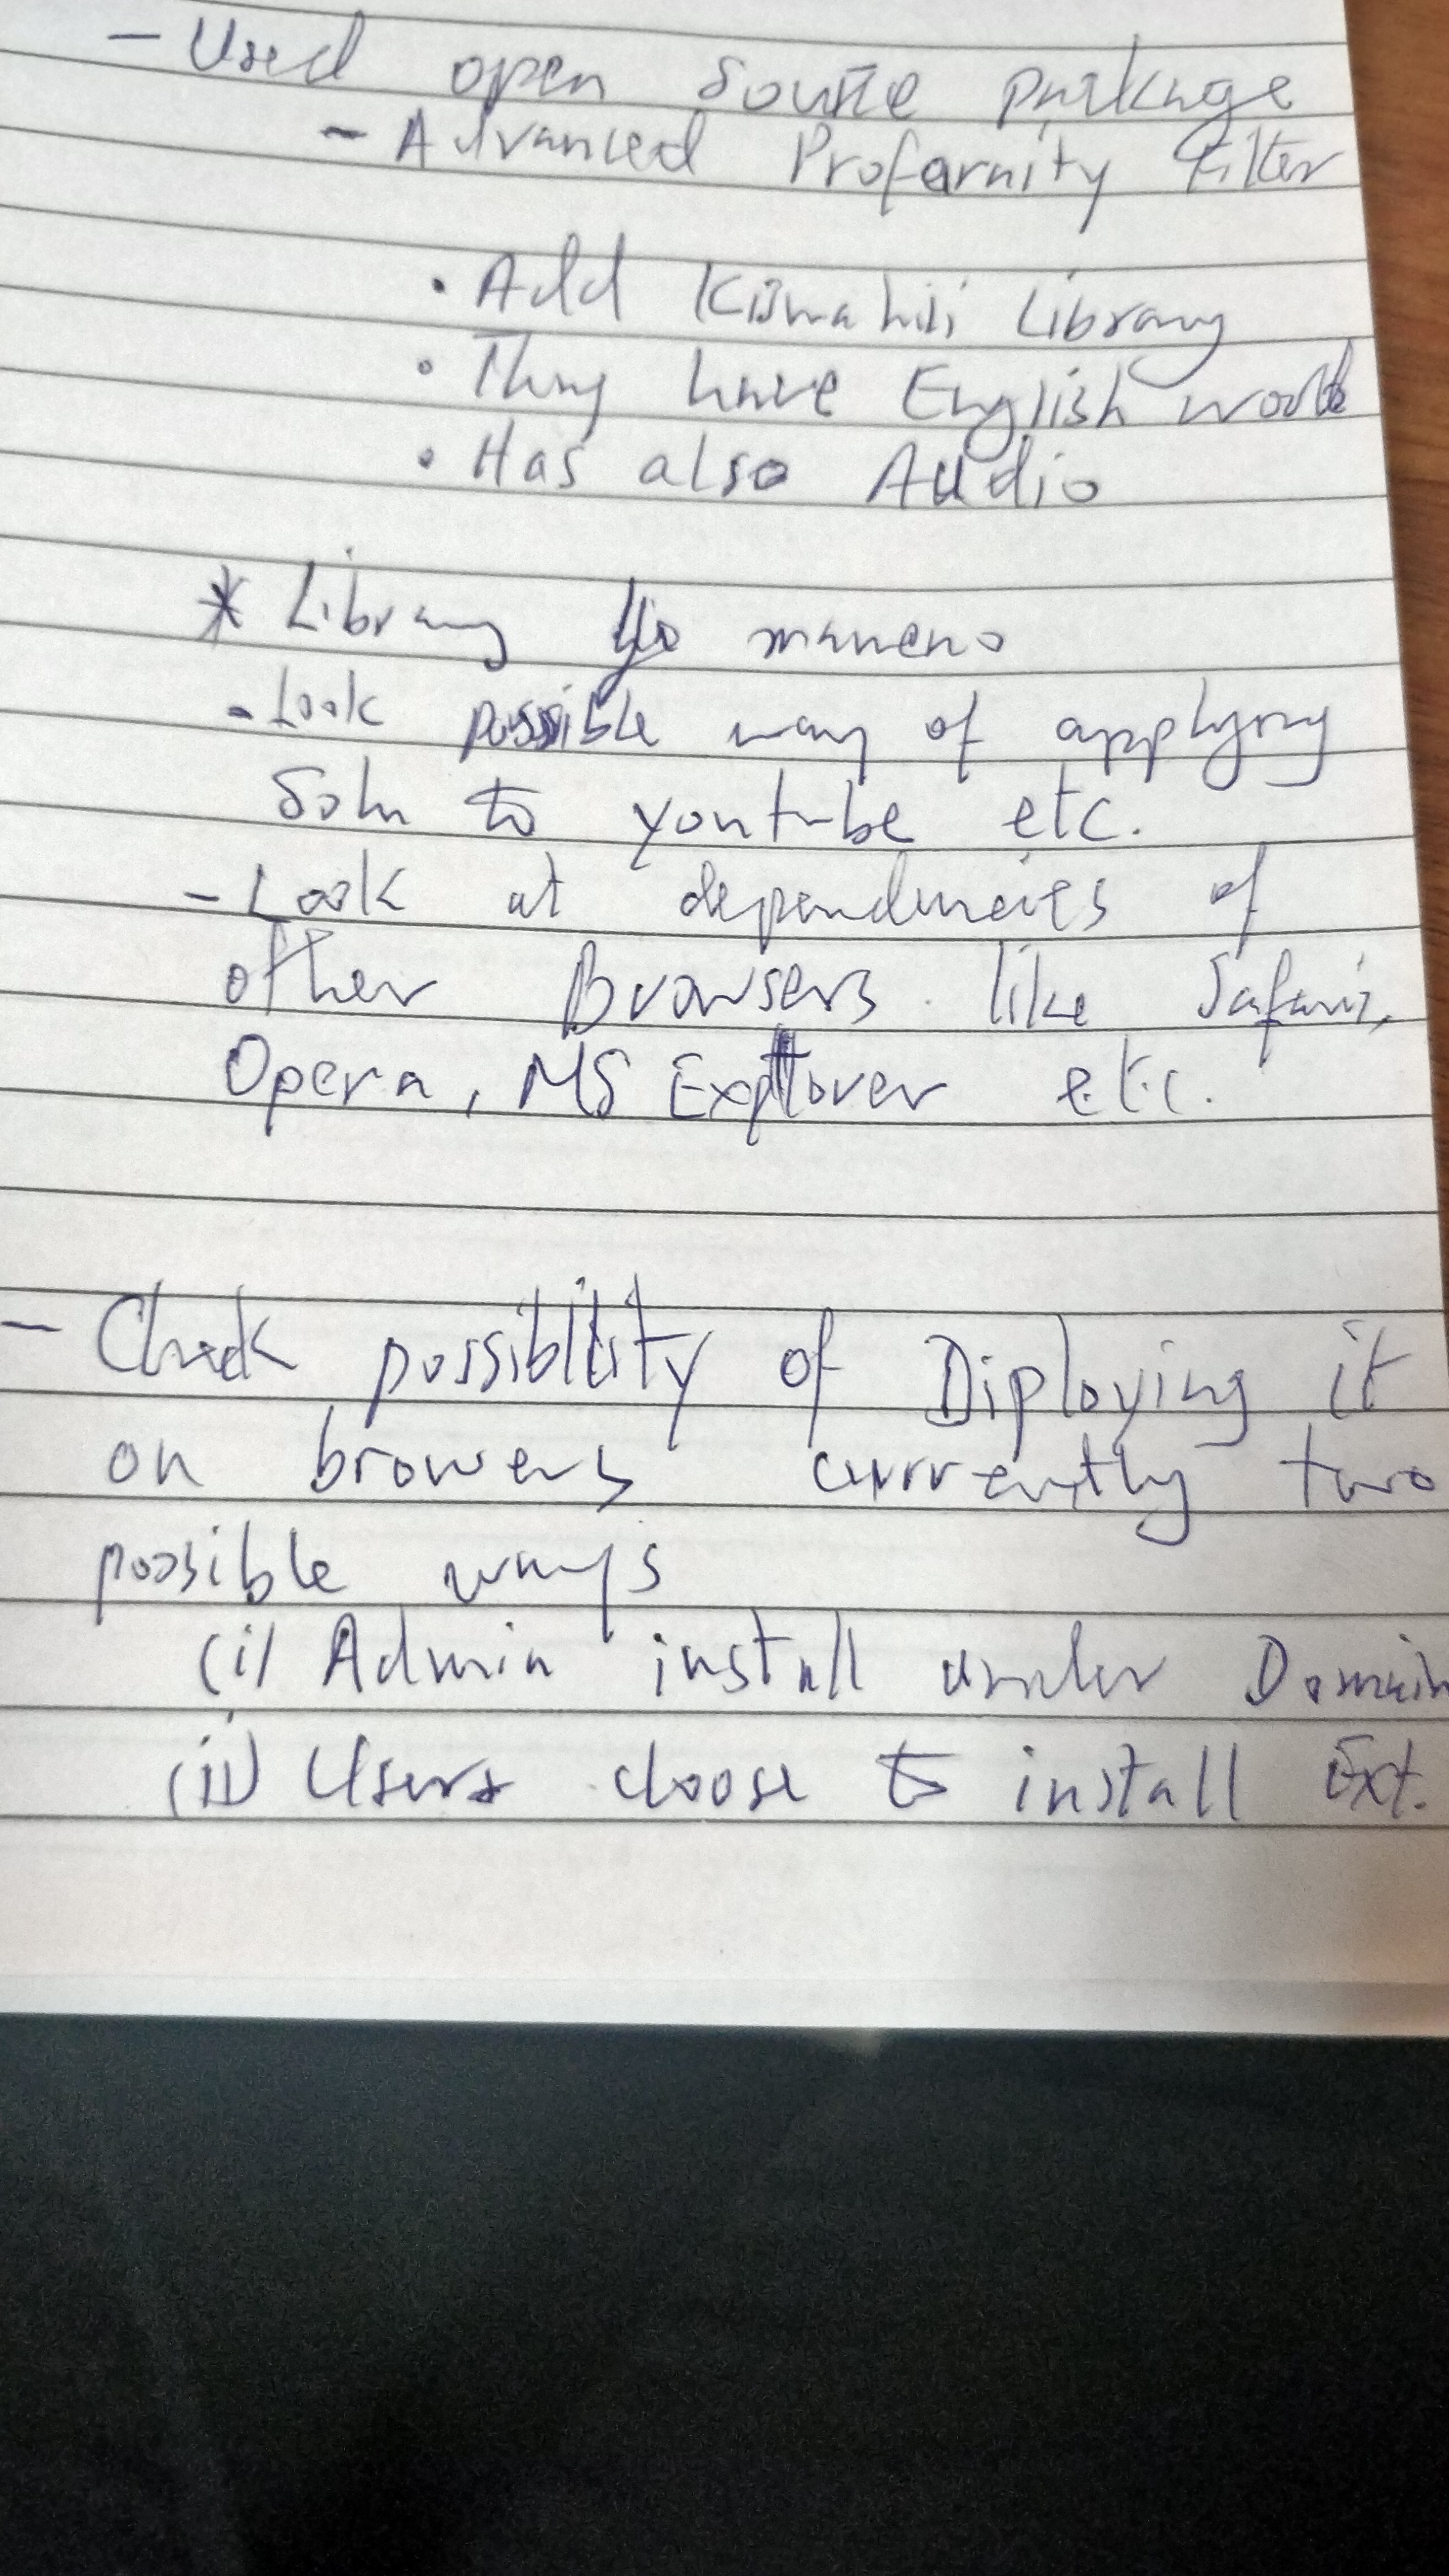 - Used open source package
- Advanced Profarnity Filter
• Add Kiswahili Library
• They have English words
• Has also Audio
* Library ya maneno
- Look possible way of applying
Soln to youtube etc.
- Look at dependencies of
other Browsers like Safari,
Opera, MS Explorer etc.
- Check possibility of Diploying it
on browers currently two
possible ways
(i) Admin install under Domain
(ii) Users choose to install Ext.